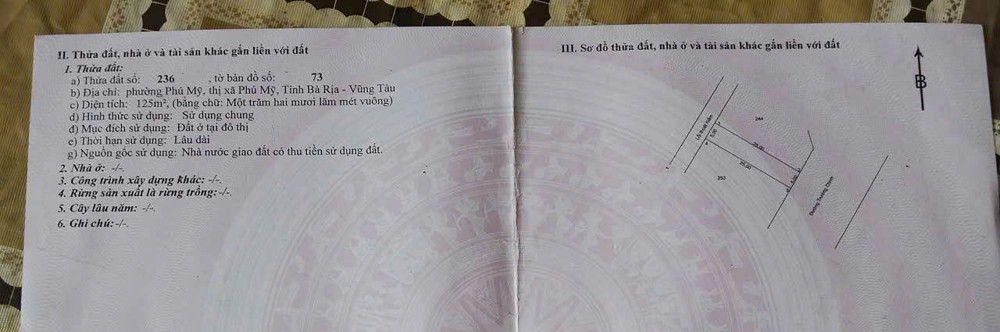 II. Thửa đất, nhà ở và tài sản khác gắn liền với đất
1. Thửa đất:
a) Thửa đất số: 236 , tờ bản đồ số: 73
b) Địa chỉ: phường Phú Mỹ, thị xã Phú Mỹ, Tỉnh Bà Rịa - Vũng Tàu
c) Diện tích: 125m², (bằng chữ: Một trăm hai mươi lăm mét vuông)
d) Hình thức sử dụng: Sử dụng chung
đ) Mục đích sử dụng: Đất ở tại đô thị
e) Thời hạn sử dụng: Lâu dài
g) Nguồn gốc sử dụng: Nhà nước giao đất có thu tiền sử dụng đất.
2. Nhà ở: -/-.
3. Công trình xây dựng khác: -/-.
4. Rừng sản xuất là rừng trồng: -/-.
5. Cây lâu năm: -/-.
6. Ghi chú: -/-.
III. Sơ đồ thửa đất, nhà ở và tài sản khác gắn liền với đất
B
244
5.00
25.00
25.00
5.00
253
Đường Trương Định